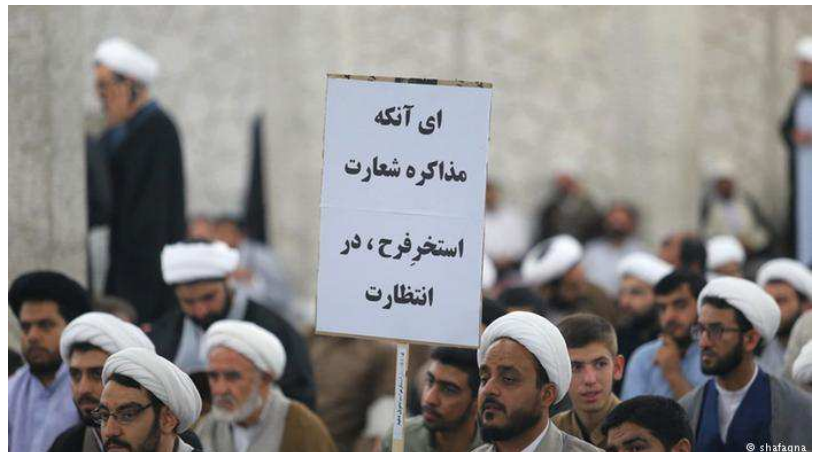 ای آنکه
مذاکره شعارت
استخرِ فرح ، در
انتظارت
© shafaqna